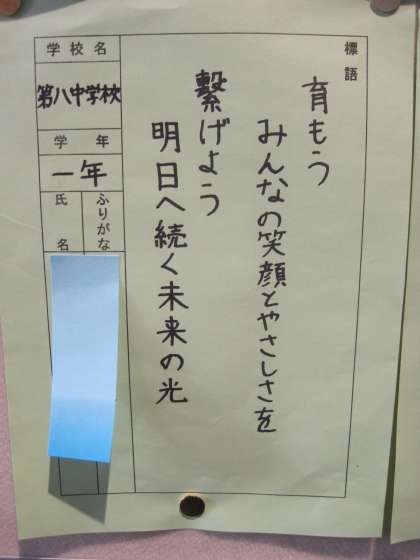 標語
育もう
みんなの笑顔とやさしさを
繋げよう
明日へ続く未来の光
学校名
第八中学校
学年
一年
ふりがな
氏名